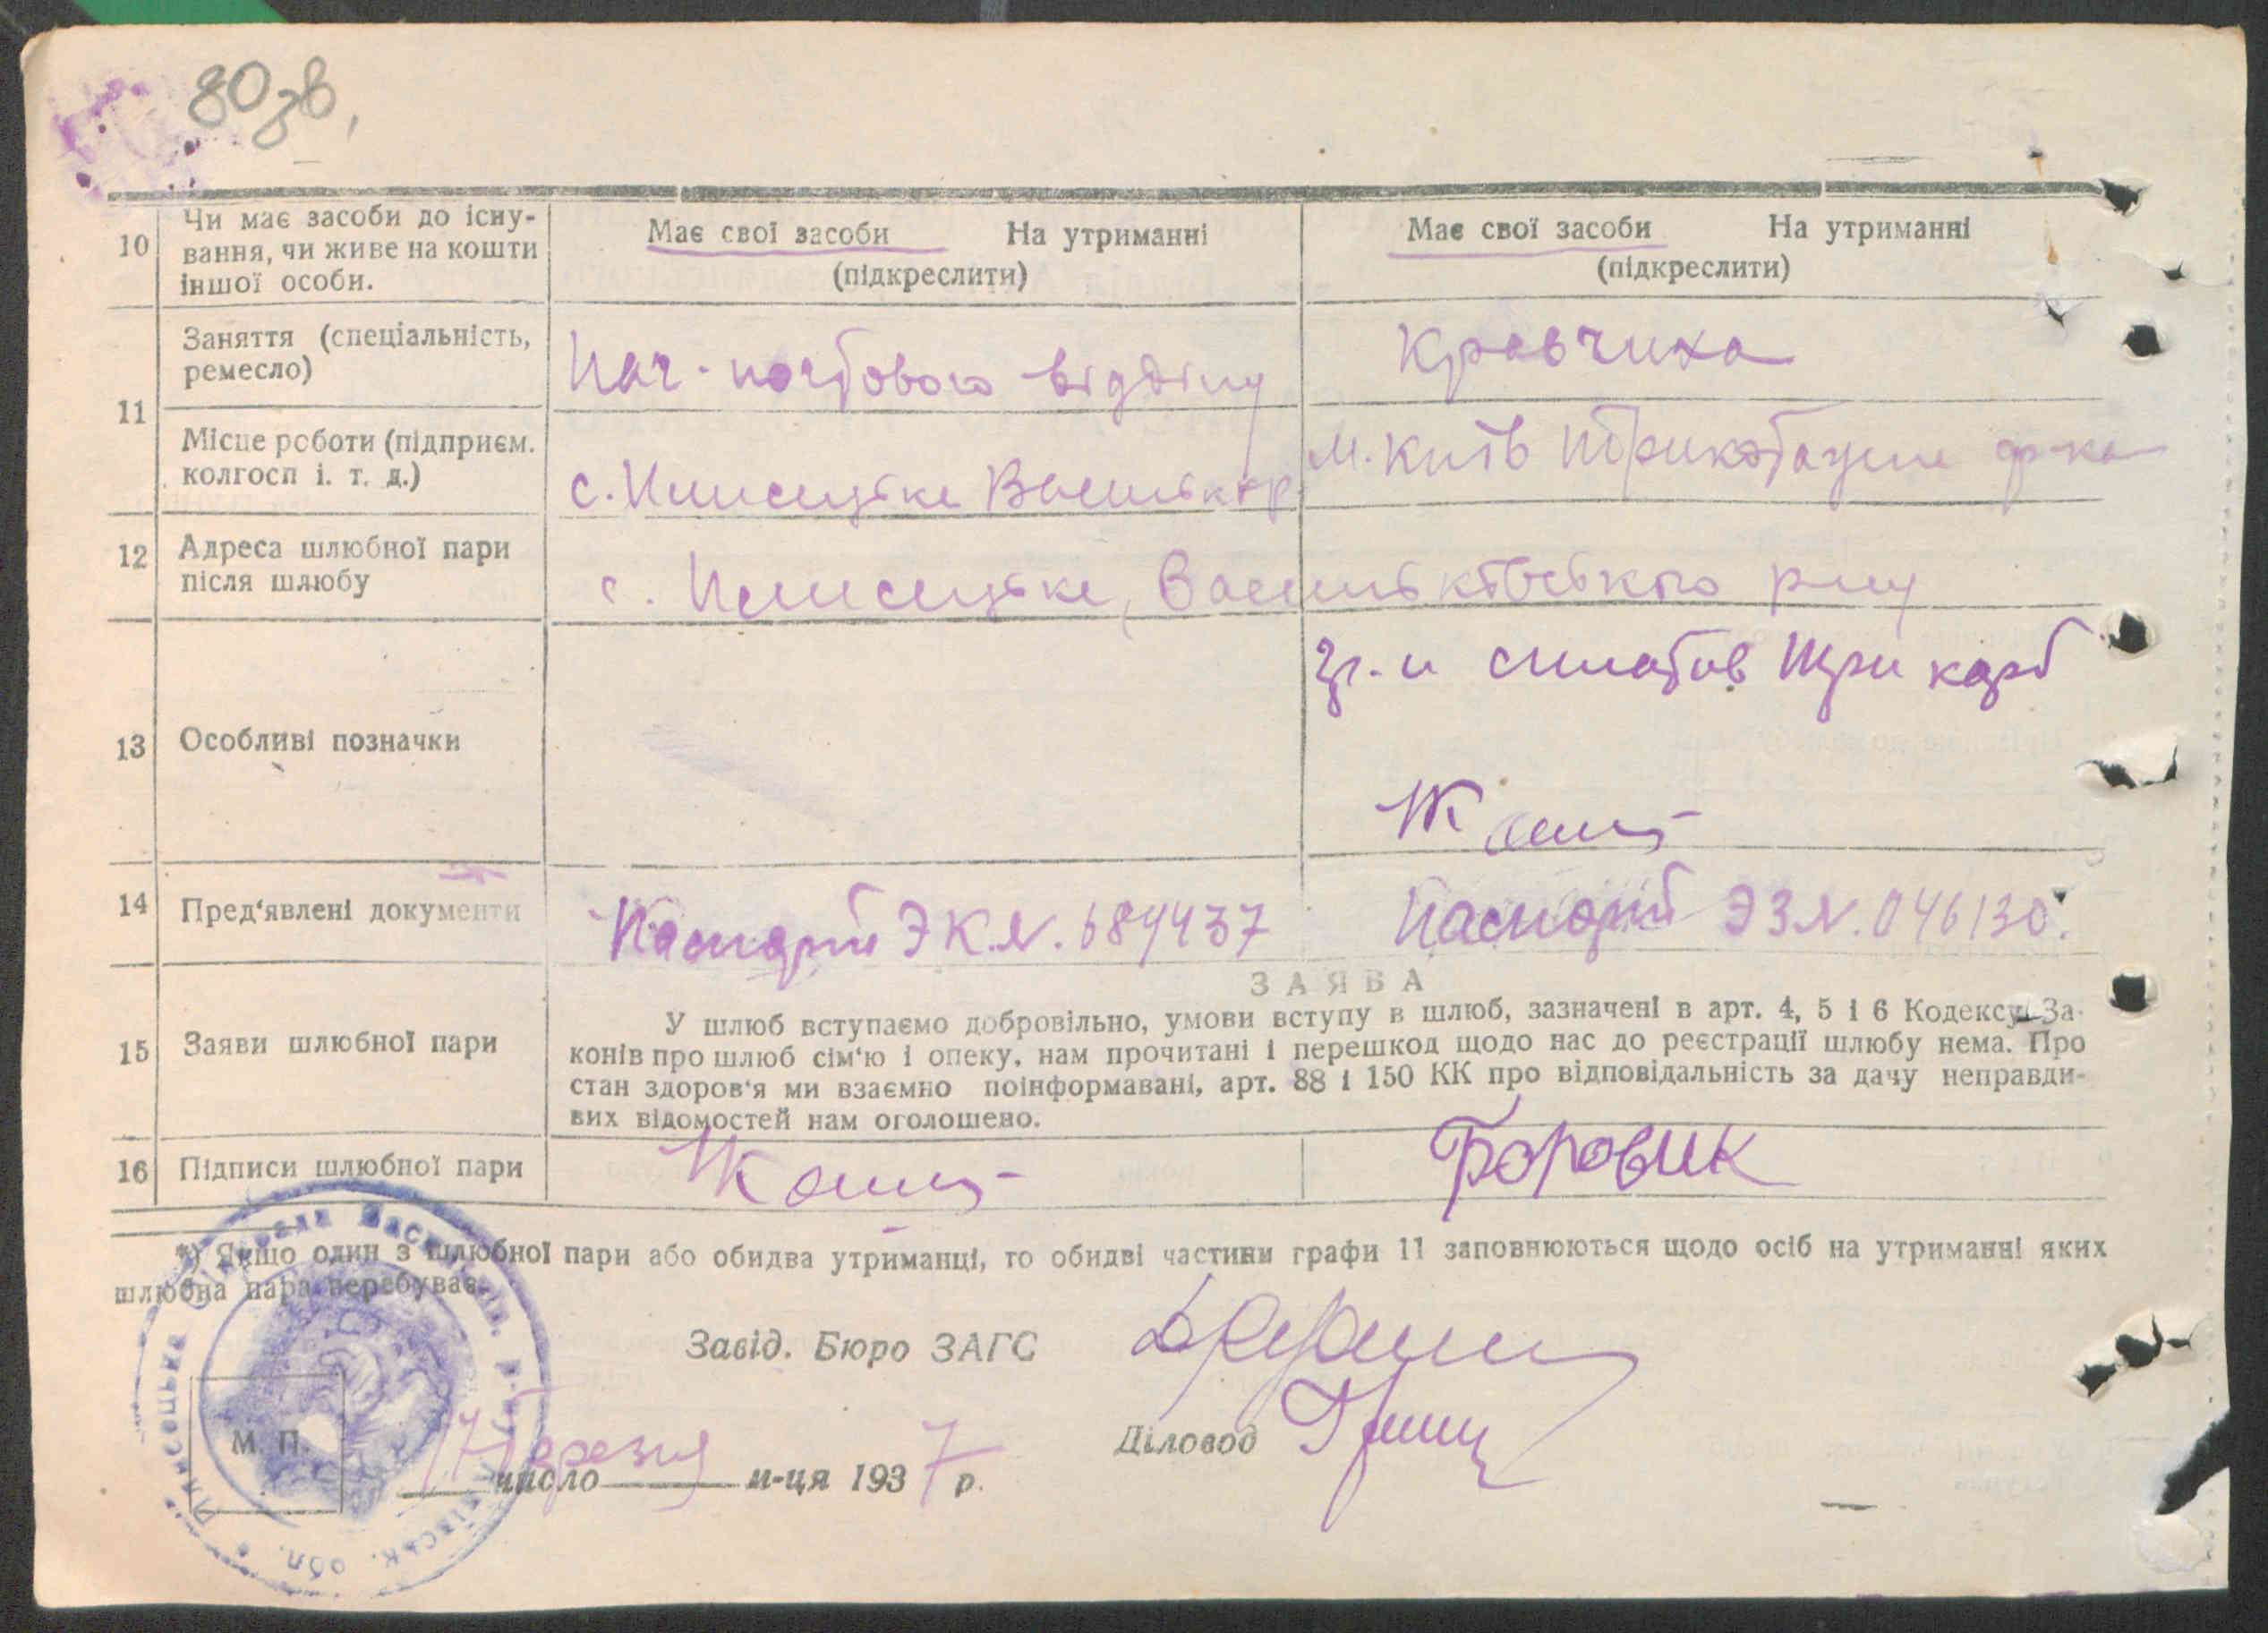 80зв.
10 Чи має засоби до існу-
вання, чи живе на кошти
іншої особи.
Має свої засоби На утриманні
(підкреслити)
Має свої засоби На утриманні
(підкреслити)
11 Заняття (спеціальність,
ремесло)
Нач. почтового відділу
Кравчиха
Місце роботи (підприєм.
колгосп і. т. д.)
с. Плисецьке Васильк. р.
м. Київ Трикотажна ф-ка
12 Адреса шлюбної пари
після шлюбу
с. Плисецьке, Васильківського р-ну
13 Особливі позначки
три карб
14 Пред'явлені документи
Паспорт ЭК N. 689437
Паспорт ЭЗ N. 046130.
15 Заяви шлюбної пари
ЗАЯВА
У шлюб вступаємо добровільно, умови вступу в шлюб, зазначені в арт. 4, 5 і 6 Кодексу За-
конів про шлюб сім'ю і опеку, нам прочитані і перешкод щодо нас до реєстрації шлюбу нема. Про
стан здоров'я ми взаємно поінформавані, арт. 88 і 150 КК про відповідальність за дачу неправди-
вих відомостей нам оголошено.
16 Підписи шлюбної пари
Боровик
*) Якщо один з шлюбної пари або обидва утриманці, то обидві частини графи 11 заповнюються щодо осіб на утриманні яких
шлюбна пара перебуває.
Завід. Бюро ЗАГС
Діловод
М. П.
17 число березня м-ця 1937 р.
Плисецька Сільрада Васильків. р-ну Київськ. обл.